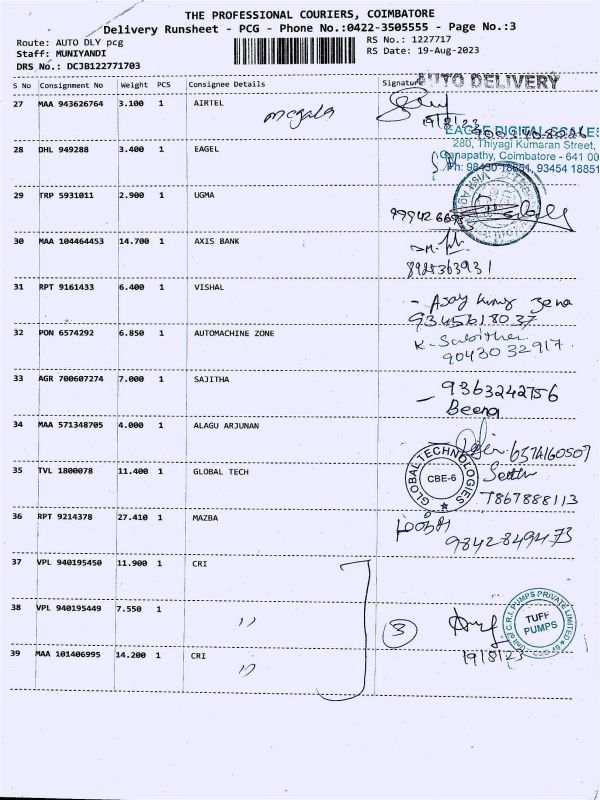 THE PROFESSIONAL COURIERS, COIMBATORE
Delivery Runsheet - PCG - Phone No.:0422-3505555 - Page No.:3
Route: AUTO DLY pcg
RS No.: 1227717
Staff: MUNIYANDI
RS Date: 19-Aug-2023
DRS No.: DCJB122771703
AUTO DELIVERY
S No Consignment No Weight PCS Consignee Details Signature
27 MAA 943626764 3.100 1 AIRTEL
19/8/23
EAGLE DIGITAL SCALES
280, Thiyagi Kumaran Street,
28 DHL 949288 3.400 1 EAGEL
Ganapathy, Coimbatore - 641 00
Ph: 98430 18851, 93454 18851
29 TRP 5931011 2.900 1 UGMA
30 MAA 104464453 14.700 1 AXIS BANK
8925363931
31 RPT 9161433 6.400 1 VISHAL
- Ajay kumar Jena
9345618037
32 PON 6574292 6.850 1 AUTOMACHINE ZONE
90430 32917
33 AGR 700607274 7.000 1 SAJITHA
- 9363242756
Beena
34 MAA 571348705 4.000 1 ALAGU ARJUNAN
35 TVL 1800078 11.400 1 GLOBAL TECH
GLOBAL TECHNOLOGIES
CBE-6
7867888113
36 RPT 9214378 27.410 1 MAZBA
9842849473
37 VPL 940195450 11.900 1 CRI
38 VPL 940195449 7.550 1 ,,
3
C.R.I. PUMPS PRIVATE LIMITED
TUFF
PUMPS
39 MAA 101406995 14.200 1 CRI
,,
19/8/23